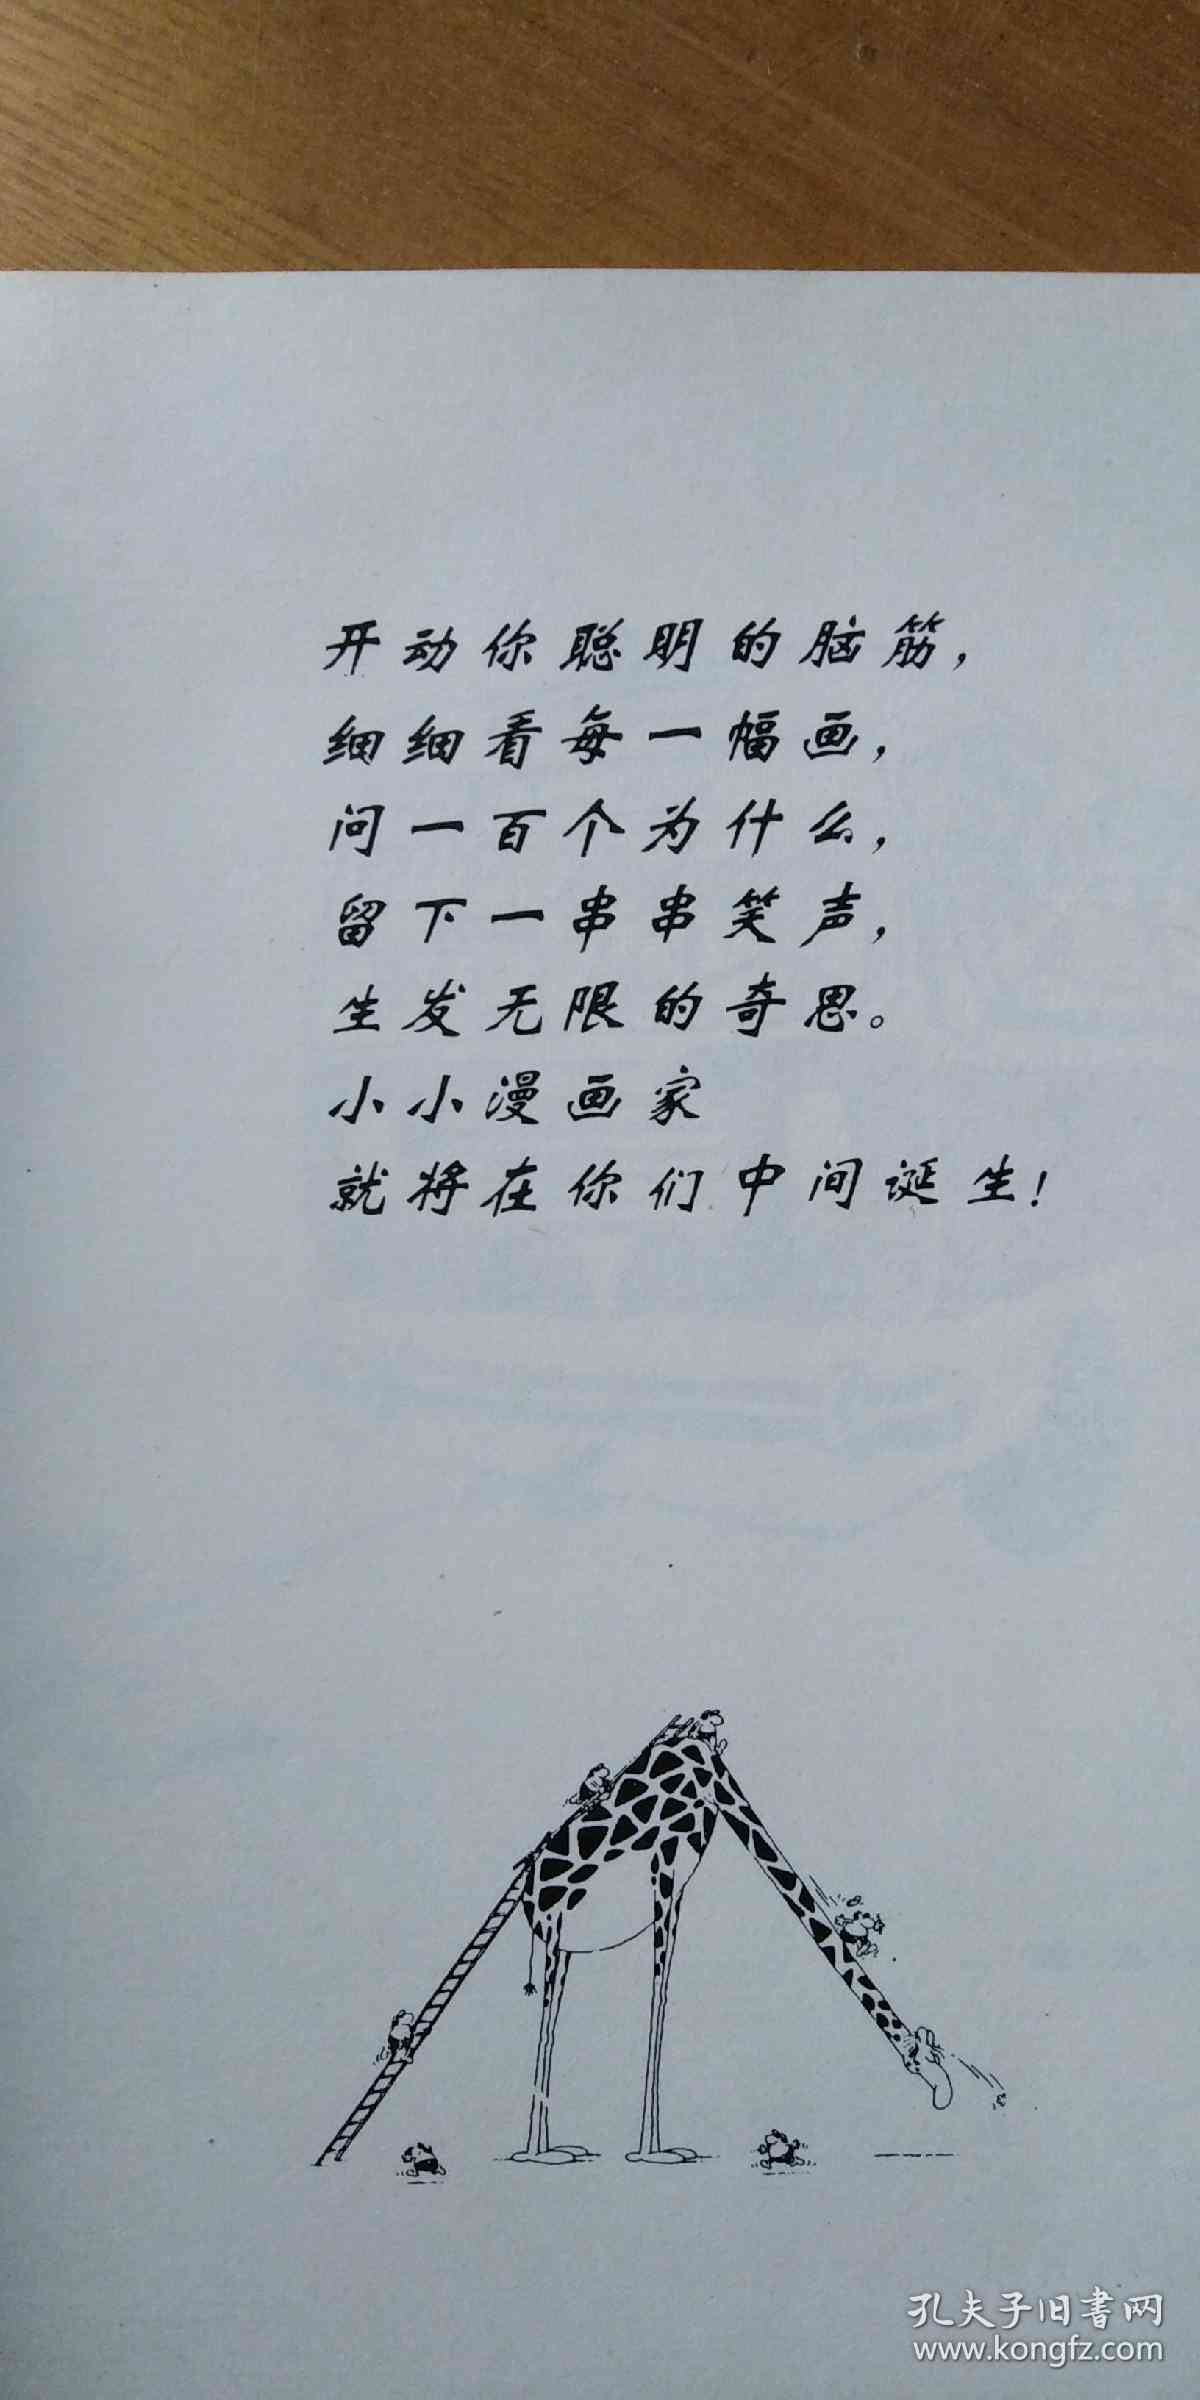 开动你聪明的脑筋，
细细看每一幅画，
问一百个为什么，
留下一串串笑声，
生发无限的奇思。
小小漫画家
就将在你们中间诞生！
孔夫子旧书网
www.kongfz.com